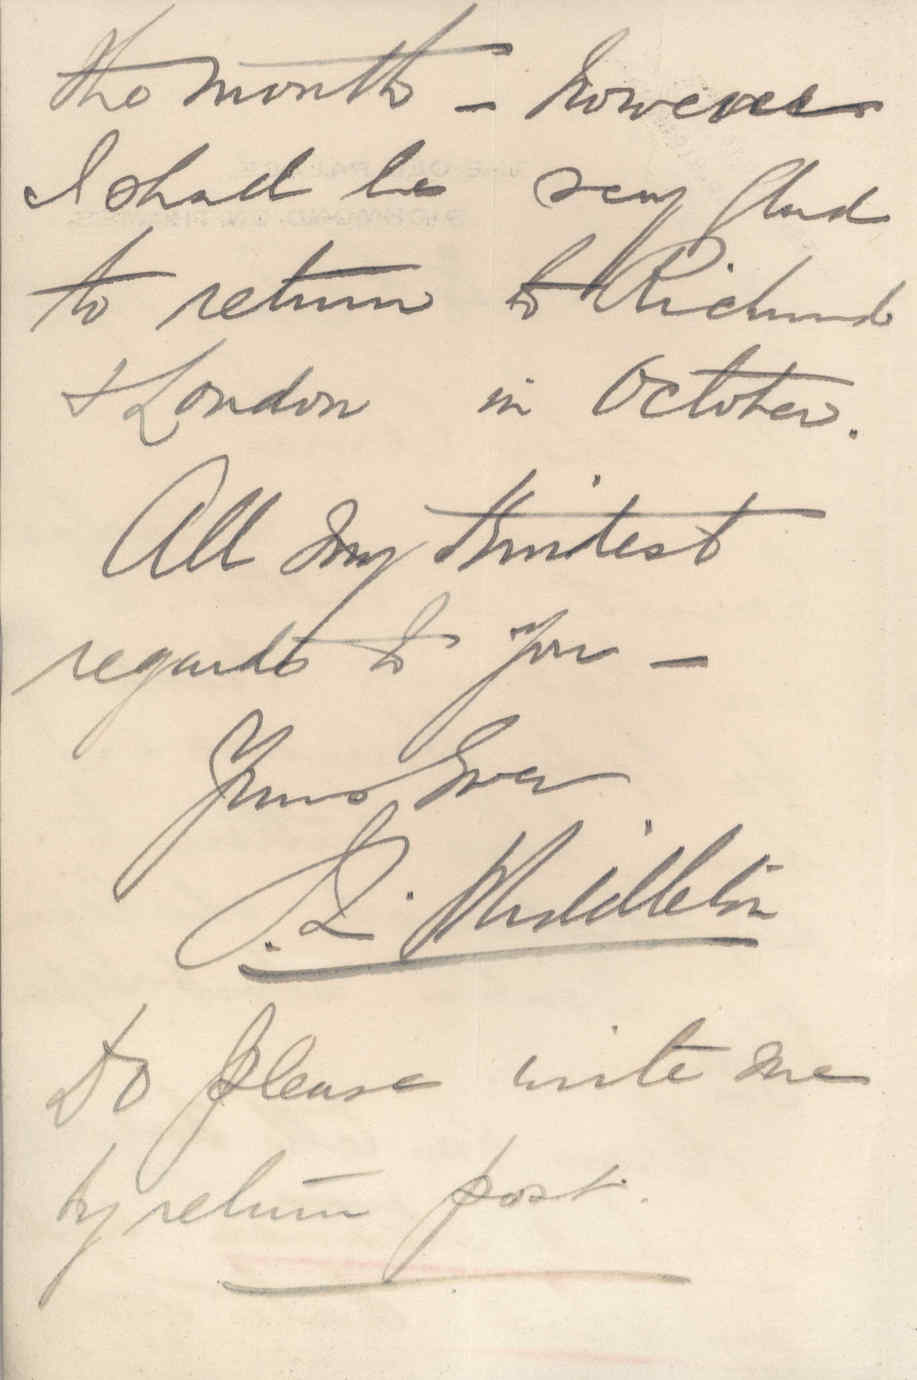 the month – However
I shall be very glad
to return to Richmond
& London in October.
All my kindest
regards to you –
Yours Ever
J. L. Middleton
Do please write me
by return post.